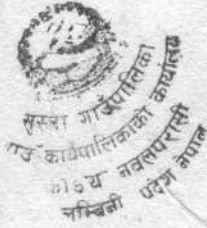 सुस्ता गाउँपालिका
गाउँ कार्यपालिकाको कार्यालय
नवलपरासी
लुम्बिनी प्रदेश नेपाल